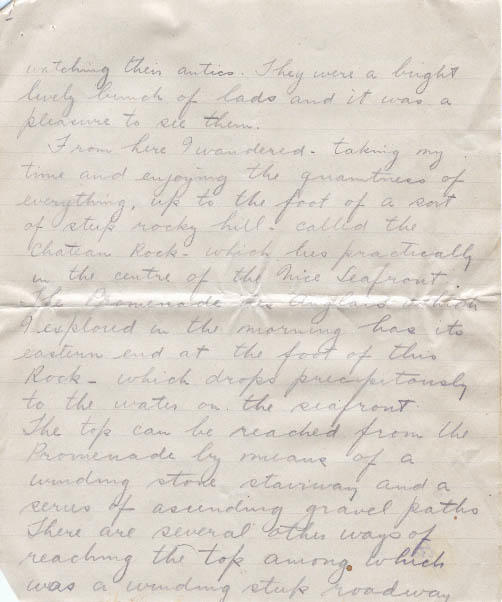 watching their antics. They were a bright
lively bunch of lads and it was a
pleasure to see them.
From here I wandered - taking my
time and enjoying the quaintness of
everything, up to the foot of a sort
of steep rocky hill - called the
Chateau Rock - which lies practically
in the centre of the Nice Seafront.
The Promenade des Anglais which
I explored in the morning has its
eastern end at the foot of this
Rock - which drops precipitously
to the water on the seafront
The top can be reached from the
Promenade by means of a
winding stone stairway and a
series of ascending gravel paths
There are several other ways of
reaching the top among which
was a winding steep roadway